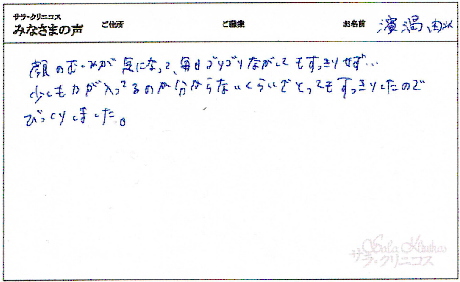 サラ・クリニコス
みなさまの声 ご住所 ご職業 お名前
顔のむくみが気になって、毎日ゴリゴリながしてもすっきりせず…
少しも力が入ってるのか分からないくらいでとってもすっきりしたので
びっくりしました。
Sala Klinikos
サラ・クリニコス